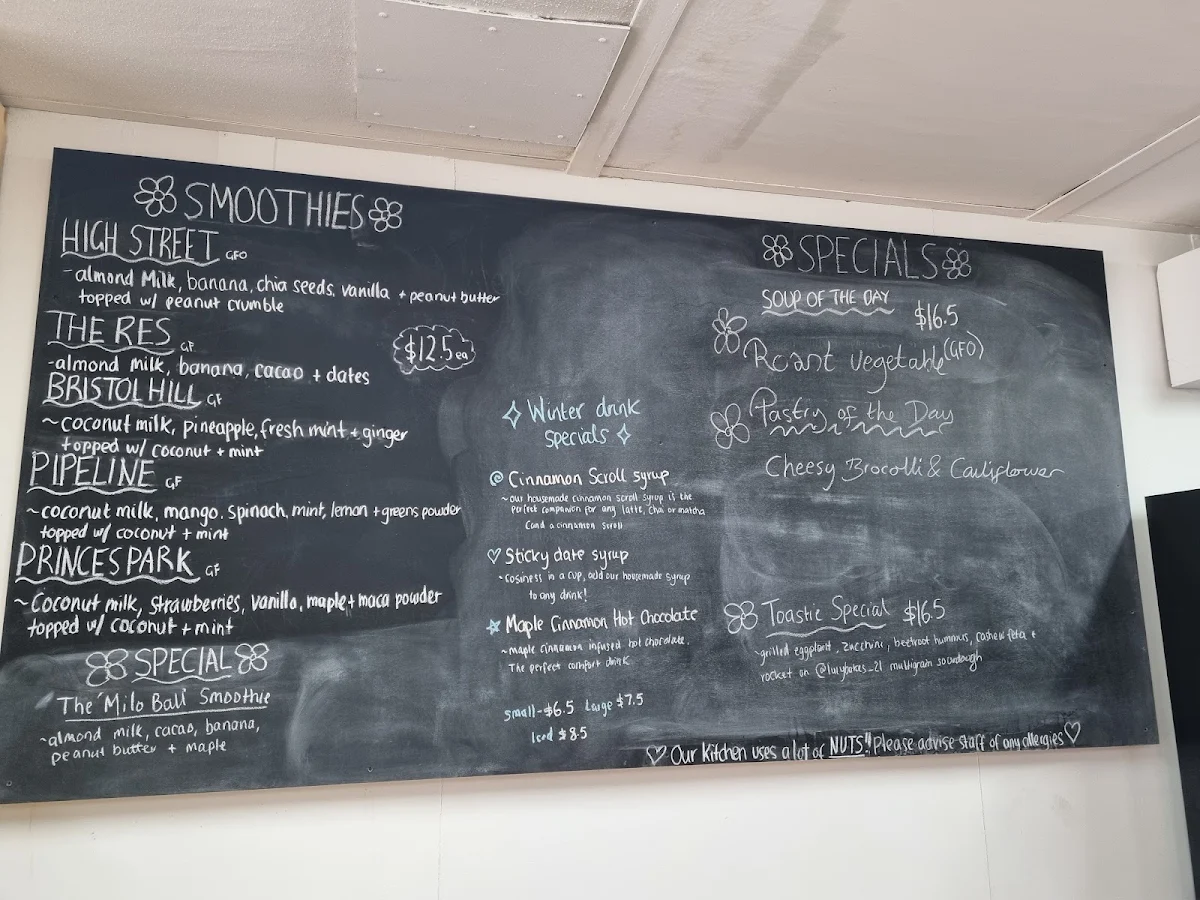 SMOOTHIES
HIGH STREET GFO
-almond Milk, banana, chia seeds, vanilla + peanut butter
topped w/ peanut crumble
THE RES GF
$12.5 ea
-almond milk, banana, cacao + dates
BRISTOL HILL GF
~coconut milk, pineapple, fresh mint + ginger
topped w/ coconut + mint
PIPELINE GF
~coconut milk, mango, spinach, mint, lemon + greens powder
topped w/ coconut + mint
PRINCES PARK GF
~Coconut milk, strawberries, vanilla, maple + maca powder
topped w/ coconut + mint
SPECIAL
The 'Milo Ball' Smoothie
~almond milk, cacao, banana,
peanut butter + maple
Winter drink
specials
Cinnamon Scroll syrup
~our housemade cinnamon scroll syrup is the
perfect companion for any latte, chai or matcha
(and a cinnamon scroll
Sticky date syrup
~cosiness in a cup, add our housemade syrup
to any drink!
Maple Cinnamon Hot Chocolate
~maple cinnamon infused hot chocolate.
The perfect comfort drink
Small-$6.5 Large $7.5
Iced $8.5
SPECIALS
SOUP OF THE DAY $16.5
Roast Vegetable (GFO)
Pastry of the Day
Cheesy Brocolli & Cauliflower
Toastie Special $16.5
~grilled eggplant, zucchini, beetroot hummus, cashew feta +
rocket on @lurybakes_21 multigrain sourdough
Our Kitchen uses a lot of NUTS!! Please advise staff of any allergies